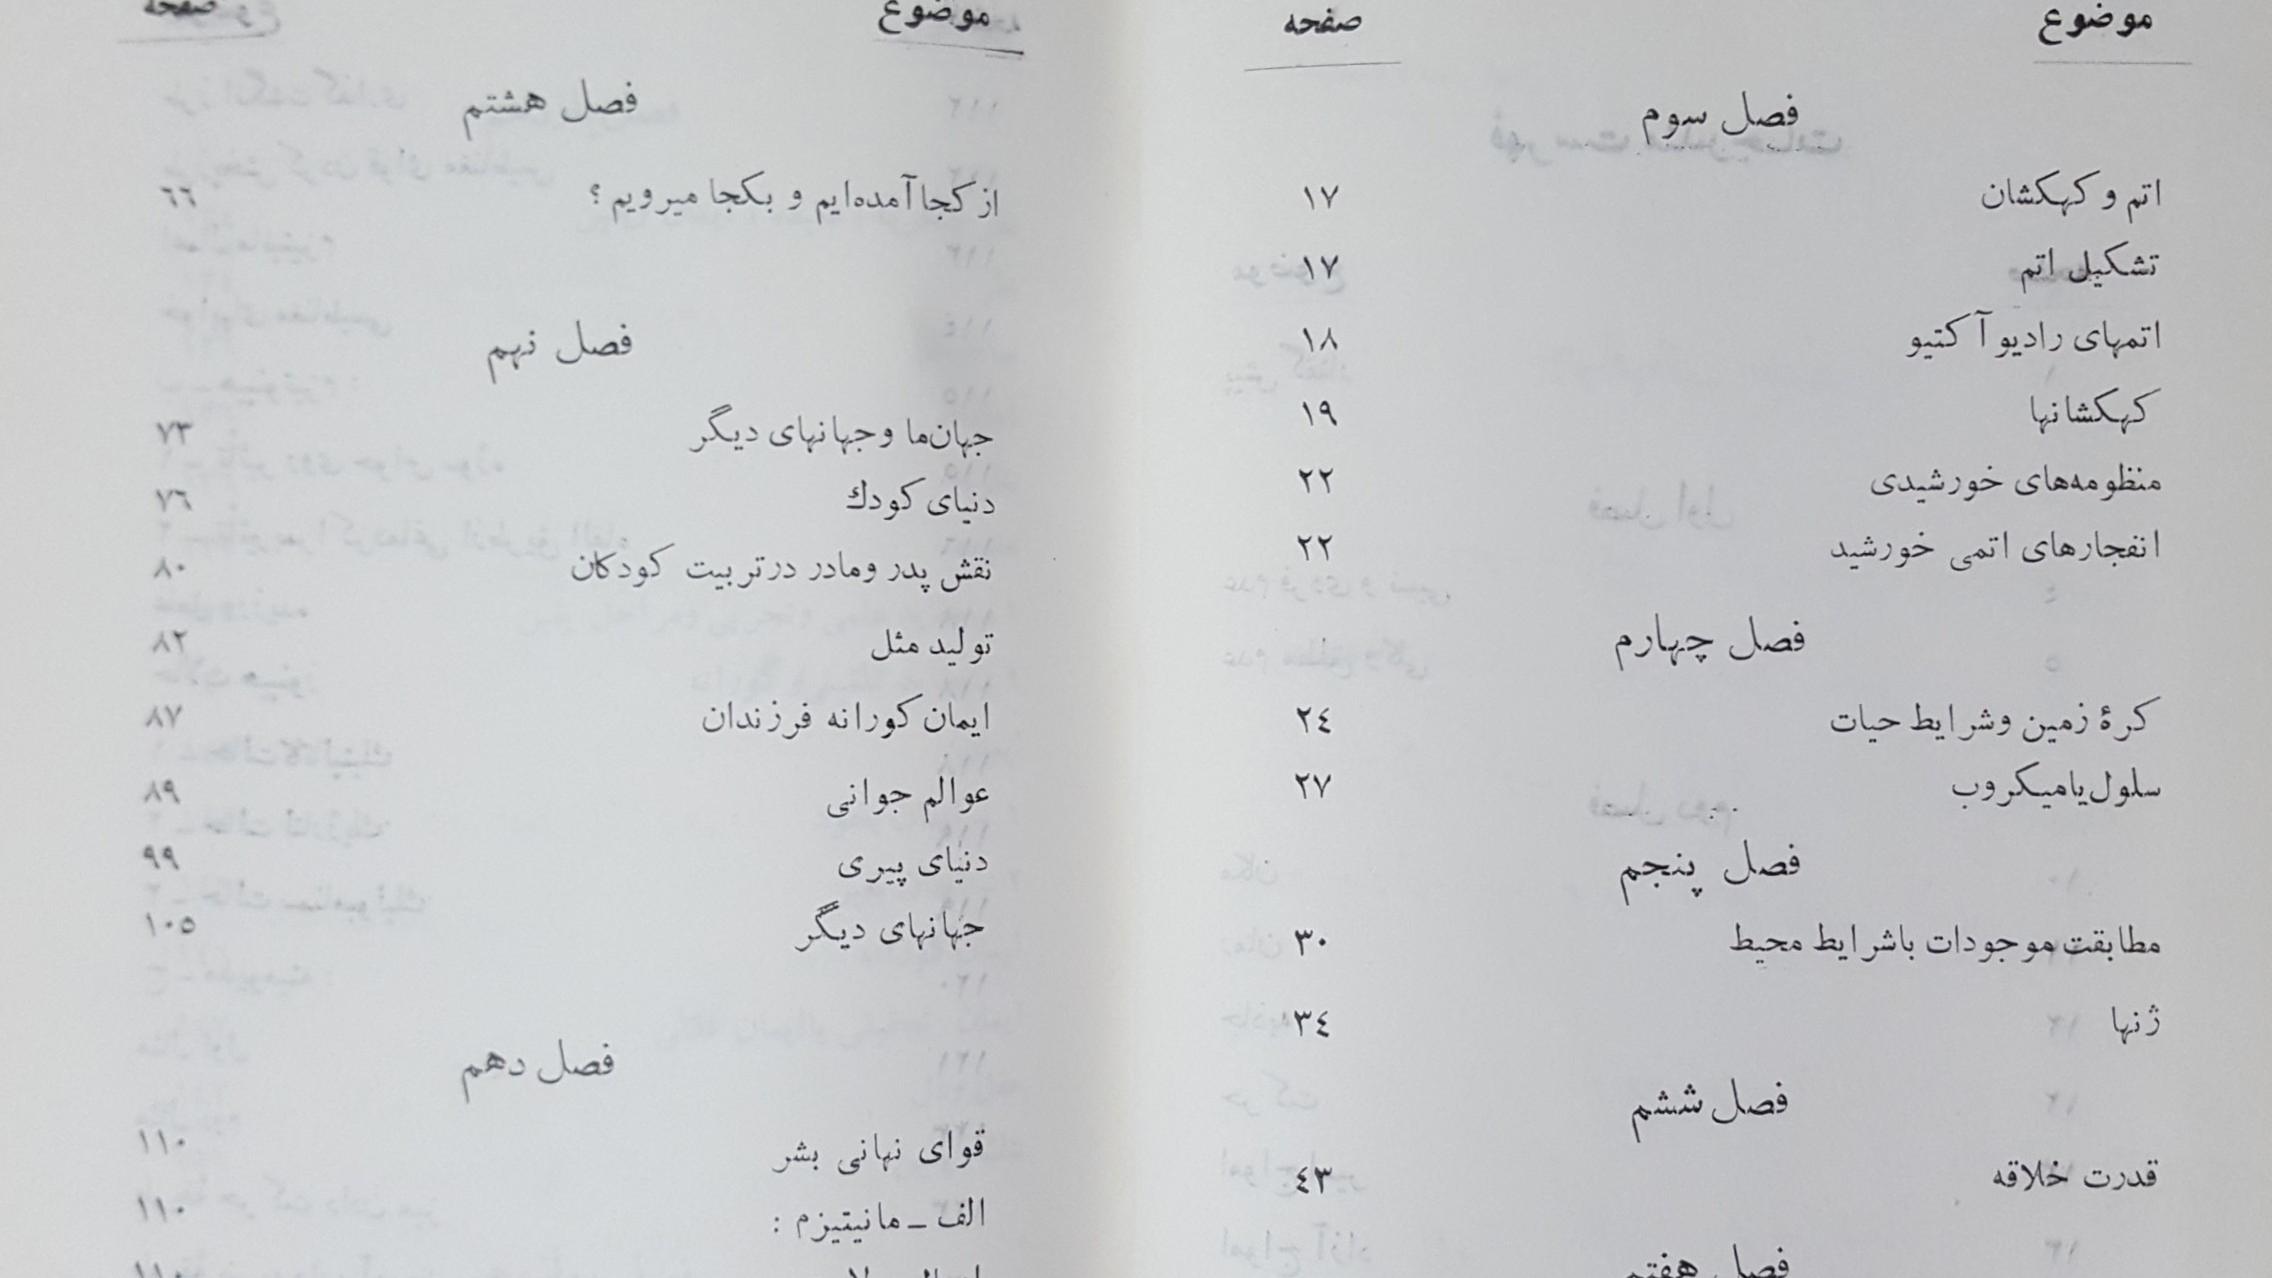 موضوع صفحه
فصل سوم
اتم و کهکشان ١٧
تشکیل اتم ١٧
اتمهای رادیو آکتیو ١٨
کهکشانها ١٩
منظومه‌های خورشیدی ٢٢
انفجارهای اتمی خورشید ٢٢
فصل چهارم
کرهٔ زمین وشرایط حیات ٢٤
سلول‌یامیکروب ٢٧
فصل پنجم
مطابقت موجودات باشرایط محیط ٣٠
ژنها ٣٤
فصل ششم
قدرت خلاقه ٤٣
فصل هفتم
موضوع صفحه
فصل هشتم
از کجا آمده‌ایم و بکجا میرویم ؟ ٦٦
فصل نهم
جهان‌ما وجهانهای دیگر ٧٣
دنیای کودك ٧٦
نقش پدر ومادر درتربیت کودکان ٨٠
تولید مثل ٨٢
ایمان کورانه فرزندان ٨٧
عوالم جوانی ٨٩
دنیای پیری ٩٩
جهانهای دیگر ١٠٥
فصل دهم
قوای نهانی بشر ١١٠
الف ــ مانیتیزم : ١١٠
١١٠